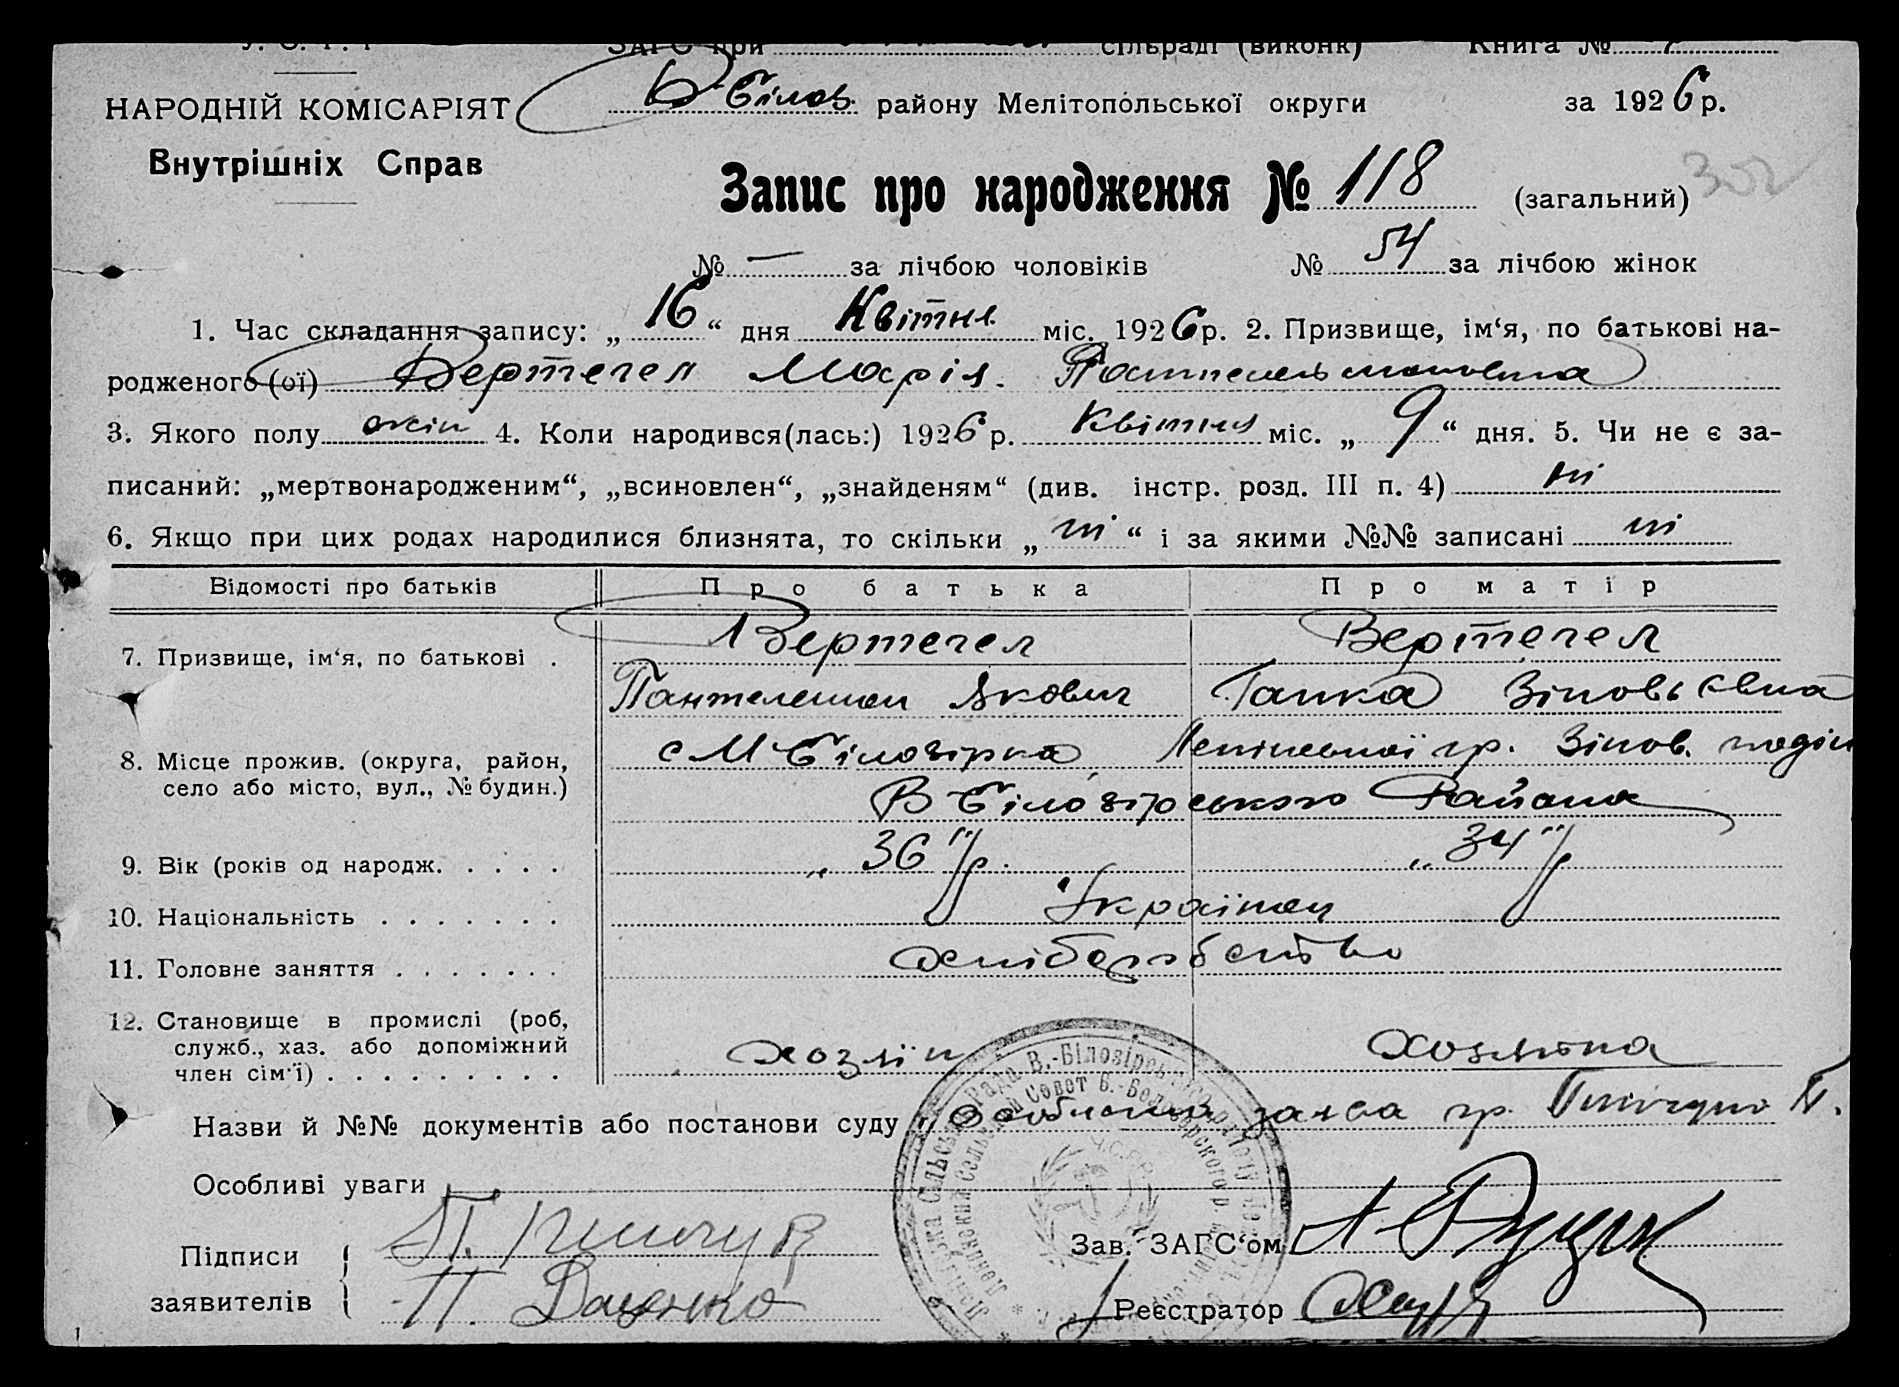 ЗАГС при сільраді (виконк) Книга №
НАРОДНІЙ КОМІСАРІЯТ
В Білоз. району Мелітопольської округи за 1926 р.
Внутрішніх Справ
Запис про народження № 118 (загальний) 302
№ — за лічбою чоловіків № 54 за лічбою жінок
1. Час складання запису: „16“ дня Квітня міс. 1926 р. 2. Призвище, ім‘я, по батькові на-
родженого (ої) Вертегел Марія Пантелеймоновна
3. Якого полу жін 4. Коли народився(лась:) 1926 р. Квітня міс. „9“ дня. 5. Чи не є за-
писаний: „мертвонародженим“, „всиновлен“, „знайденям“ (див. інстр. розд. III п. 4) ні
6. Якщо при цих родах народилися близнята, то скільки „ні“ і за якими №№ записані ні
Відомості про батьків Про батька Про матір
7. Призвище, ім‘я, по батькові . Вертегел Вертегел
Пантелеймон Якович Гапка Зіновьєвна
8. Місце прожив. (округа, район, с М Білозірка, гр. Зінов.
село або місто, вул., № будин.) В Білозірського Району
9. Вік (років од народж. . . . . „36“ р. „34“ р
10. Національність . . . . . . . Українці
11. Головне заняття . . . . . . . хліборобство
12. Становище в промислі (роб, служб., хаз. або допоміжний член сім‘ї) . . . . . . . . . хозяїн хозяйка
Назви й №№ документів або постанови суду Особиста заява гр.
Особливі уваги
Підписи
Зав. ЗАГС‘ом
заявителів П. Даценко
Реєстратор